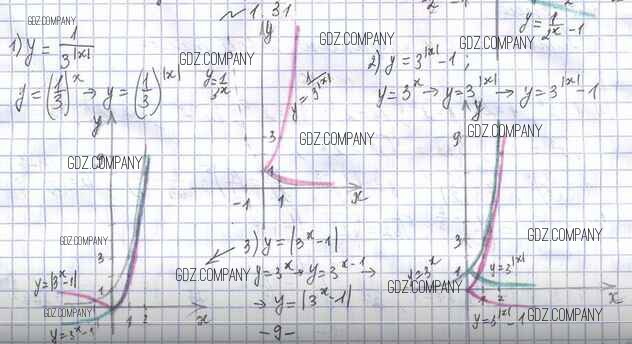 ∼ 1.31
GDZ.COMPANY
y
y = 1/(2^x) - 1
1) y = 1/3^|x|
GDZ.COMPANY
GDZ.COMPANY
GDZ.COMPANY
2) y = 3^|x| - 1;
y = (1/3)^x → y = (1/3)^|x|
y = 1/3^x
y = 1/3^|x|
y = 3^x → y = 3^|x| → y = 3^|x| - 1
GDZ.COMPANY
y
y
9
3
GDZ.COMPANY
GDZ.COMPANY
1
-1
1
x
GDZ.COMPANY
3
3) y = |3^x - 1|
GDZ.COMPANY
3
GDZ.COMPANY
y = 3^x → y = 3^x - 1 →
y = 3^x
1
y = 3^|x|
y = |3^x - 1|
1
→ y = |3^x - 1|
GDZ.COMPANY
1 2
x
GDZ.COMPANY
1 2
x
y = 3^x - 1
-9-
y = 3^|x| - 1
GDZ.COMPANY